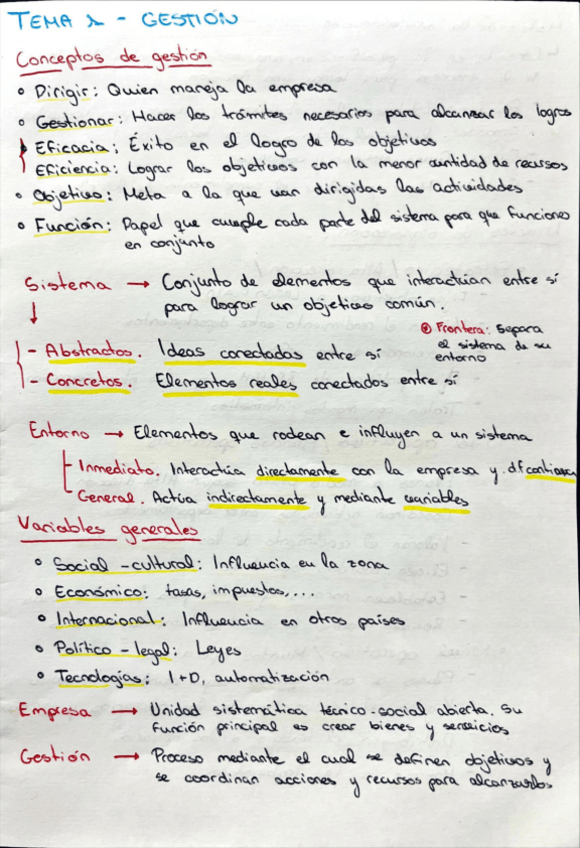 TEMA 1 - GESTIÓN
Conceptos de gestión
• Dirigir: Quien maneja la empresa
• Gestionar: Hacer los trámites necesarios para alcanzar los logros
Eficacia: Éxito en el logro de los objetivos
Eficiencia: Lograr los objetivos con la menor cantidad de recursos
• Objetivo: Meta a la que van dirigidas las actividades
• Función: Papel que cumple cada parte del sistema para que funcione
en conjunto
Sistema → Conjunto de elementos que interactúan entre sí
para lograr un objetivo común.
Frontera: Separa
el sistema de su
entorno
- Abstractos. Ideas conectadas entre sí
- Concretos. Elementos reales conectados entre sí
Entorno → Elementos que rodean e influyen a un sistema
Inmediato. Interactúa directamente con la empresa y
General. Actúa indirectamente y mediante variables
Variables generales
• Social - cultural: Influencia en la zona
• Económico: tasas, impuestos,...
• Internacional: Influencia en otros países
• Político - legal: Leyes
• Tecnologías: I+D, automatización
Empresa → Unidad sistemática técnico-social abierta. Su
función principal es crear bienes y servicios
Gestión → Proceso mediante el cual se definen objetivos y
se coordinan acciones y recursos para alcanzarlos